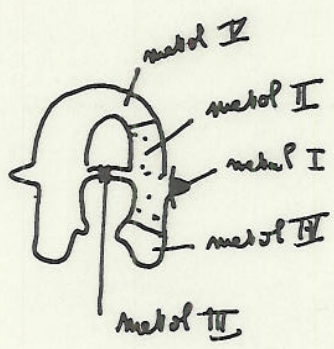 metal V
metal II
metal I
metal IV
metal III